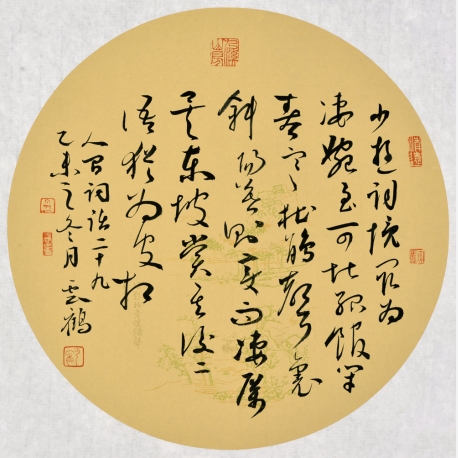 少遊詞境最为
淒婉至可堪孤館闭
春寒杜鵑聲裏
斜陽暮則变而淒厲
矣東坡赏其後二
語猶为皮相
人间詞話二十九
乙未之冬月雲鶴